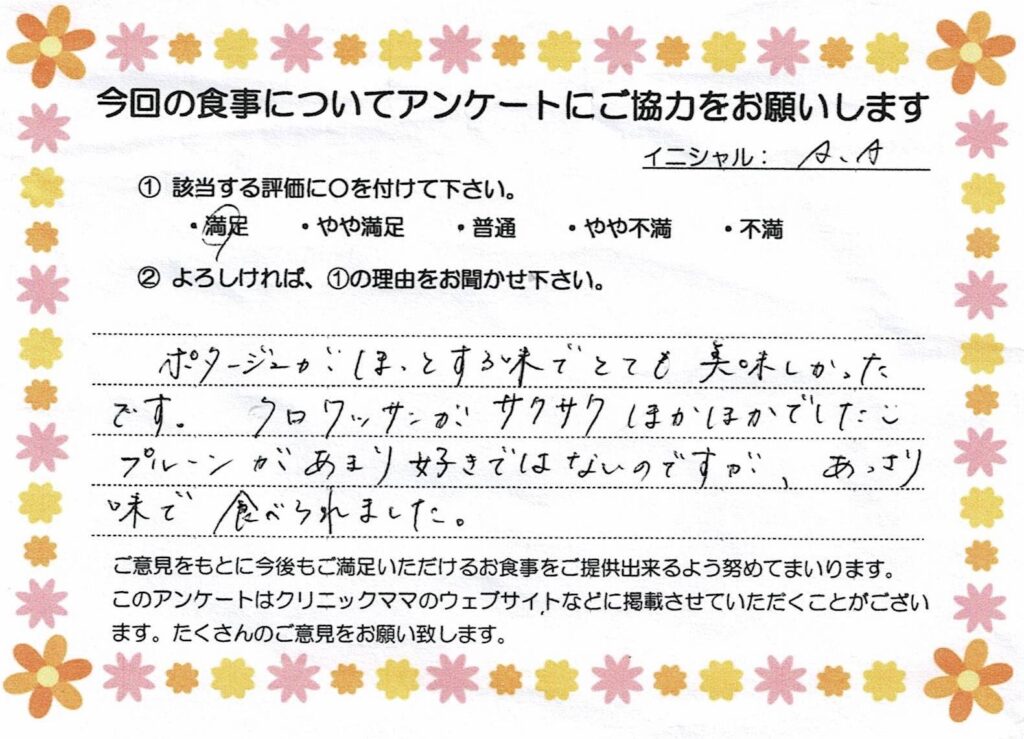 今回の食事についてアンケートにご協力をお願いします
イニシャル： A、A
① 該当する評価に〇を付けて下さい。
・満足 ・やや満足 ・普通 ・やや不満 ・不満
② よろしければ、①の理由をお聞かせ下さい。
ポタージュがほっとする味でとても美味しかった
です。 クロワッサンがサクサクほかほかでした
プルーンがあまり好きではないのですが、あっさり
味で食べられました。
ご意見をもとに今後もご満足いただけるお食事をご提供出来るよう努めてまいります。
このアンケートはクリニックママのウェブサイトなどに掲載させていただくことがござい
ます。たくさんのご意見をお願い致します。